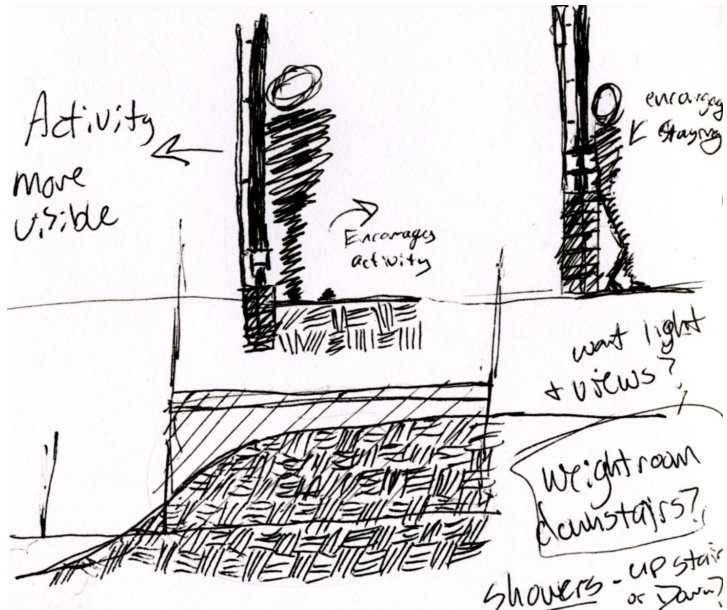 Activity
more
visible
Encourages
activity
encourages
staying
want light
+ views?
Weightroom
downstairs?
Showers - upstairs
or Down?